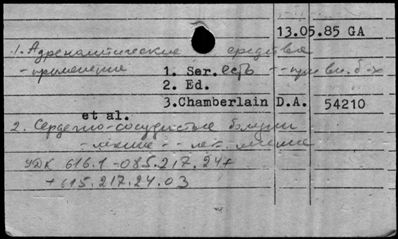 13.05.85 GA
1. Адреналитические средства
- применение 1. Ser. есть -- при
2. Ed.
3. Chamberlain D.A. 54210
et al.
2. Сердечно-сосудистые болезни
- -- лек.
УДК 616.1-085.217.24+
+615.217.24.03